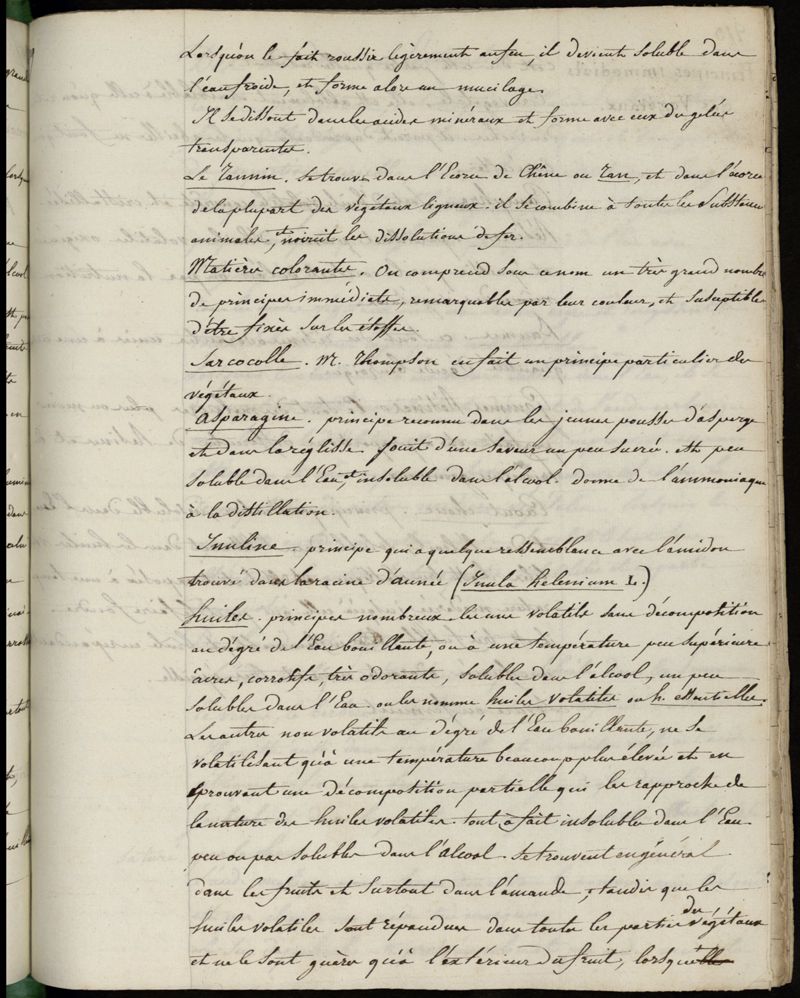 Lorsqu'on le fait roussir légèrement au feu, il devient soluble dans
l'eau froide, et forme alors un mucilage.
Il se dissout dans les acides minéraux et forme avec eux des gelées
transparentes.
Le Tannin. se trouve dans l'Ecorce de Chêne ou Tan, et dans l'écorce
de la plupart des végétaux ligneux. il se combine à toutes les Substances
animales, et noircit les dissolutions de fer.
Matières colorantes. On comprend sous ce nom un très grand nombre
de principes immédiats, remarquables par leur couleur, et susceptibles
d'être fixés sur les étoffes.
Sarcocolle. M. Thompson en fait un principe particulier des
végétaux.
Asparagine. principe reconnu dans les jeunes pousses d'asperge
et dans la réglisse. jouit d'une saveur un peu sucrée. est peu
soluble dans l'Eau, et insoluble dans l'alcool. donne de l'ammoniaque
à la distillation.
Inuline. principe qui a quelque ressemblance avec l'amidon
trouvé dans la racine d'aunée (Inula helenium L.)
huiles. principes nombreux. les uns volatils sans décomposition
au dégré de l'Eau bouillante, ou à une température peu supérieure
âcres, corrosifs, très odorants, solubles dans l'alcool, un peu
solubles dans l'Eau. on les nomme huiles volatiles ou h. essentielles.
Les autres non volatils au dégré de l'Eau bouillante, ne se
volatilisant qu'à une température beaucoup plus élevée et en
éprouvant une décomposition partielle qui les rapproche de
la nature des huiles volatiles. tout à fait insolubles dans l'Eau.
peu ou pas solubles dans l'alcool. se trouvent en général
dans les fruits et surtout dans l'amande, tandis que les
huiles volatiles sont répandues dans toutes les parties des végétaux
et ne le sont guères qu'à l'extérieur du fruit, lorsqu'elle